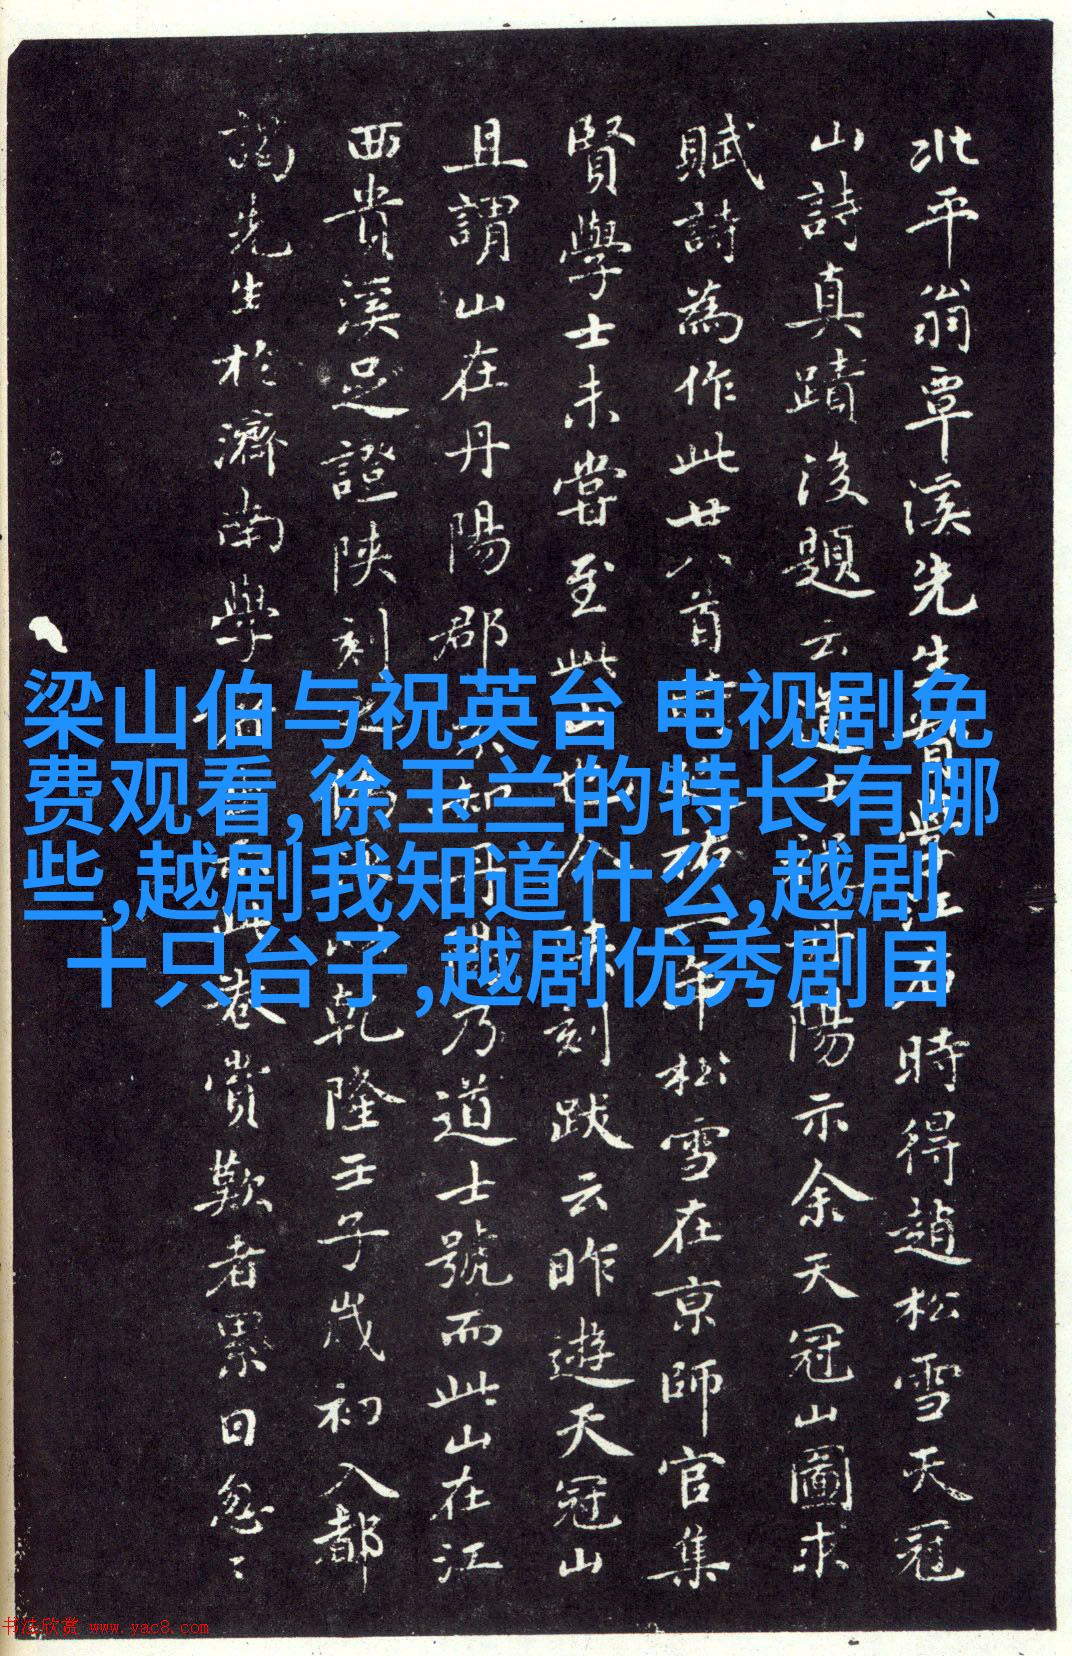 北平翁覃溪先生督學江右時得趙松雪天冠
山詩真蹟後題云道士祝丹陽示余天冠山圖求
賦詩為作此廿八首詩 年松雪在京師官集
賢學士未嘗至此山也今陝刻跋云昨遊天冠山
且謂山在丹陽郡不知丹陽乃道士號而此山在江
西貴溪足證陝刻之偽 以乾隆壬子歲初入都
謁先生於濟南學署 此卷賞歎者累日忽〻
梁山伯与祝英台 电视剧免
费观看,徐玉兰的特长有哪
些,越剧我知道什么,越剧
十只台子,越剧优秀剧目
书法欣赏 www.yac8.com